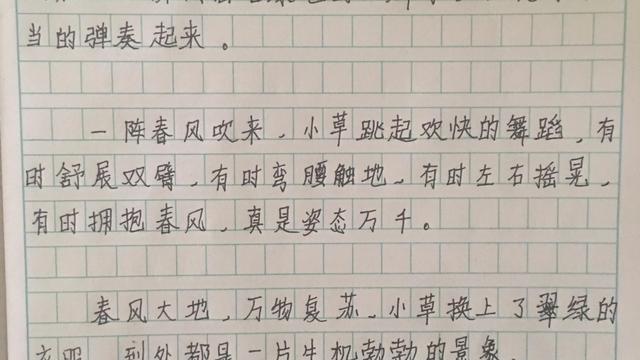 当的弹奏起来。
一阵春风吹来,小草跳起欢快的舞蹈,有
时舒展双臂,有时弯腰触地,有时左右摇晃,
有时拥抱春风,真是姿态万千。
春风大地,万物复苏,小草换上了翠绿的
衣服,到处都是一片生机勃勃的景象